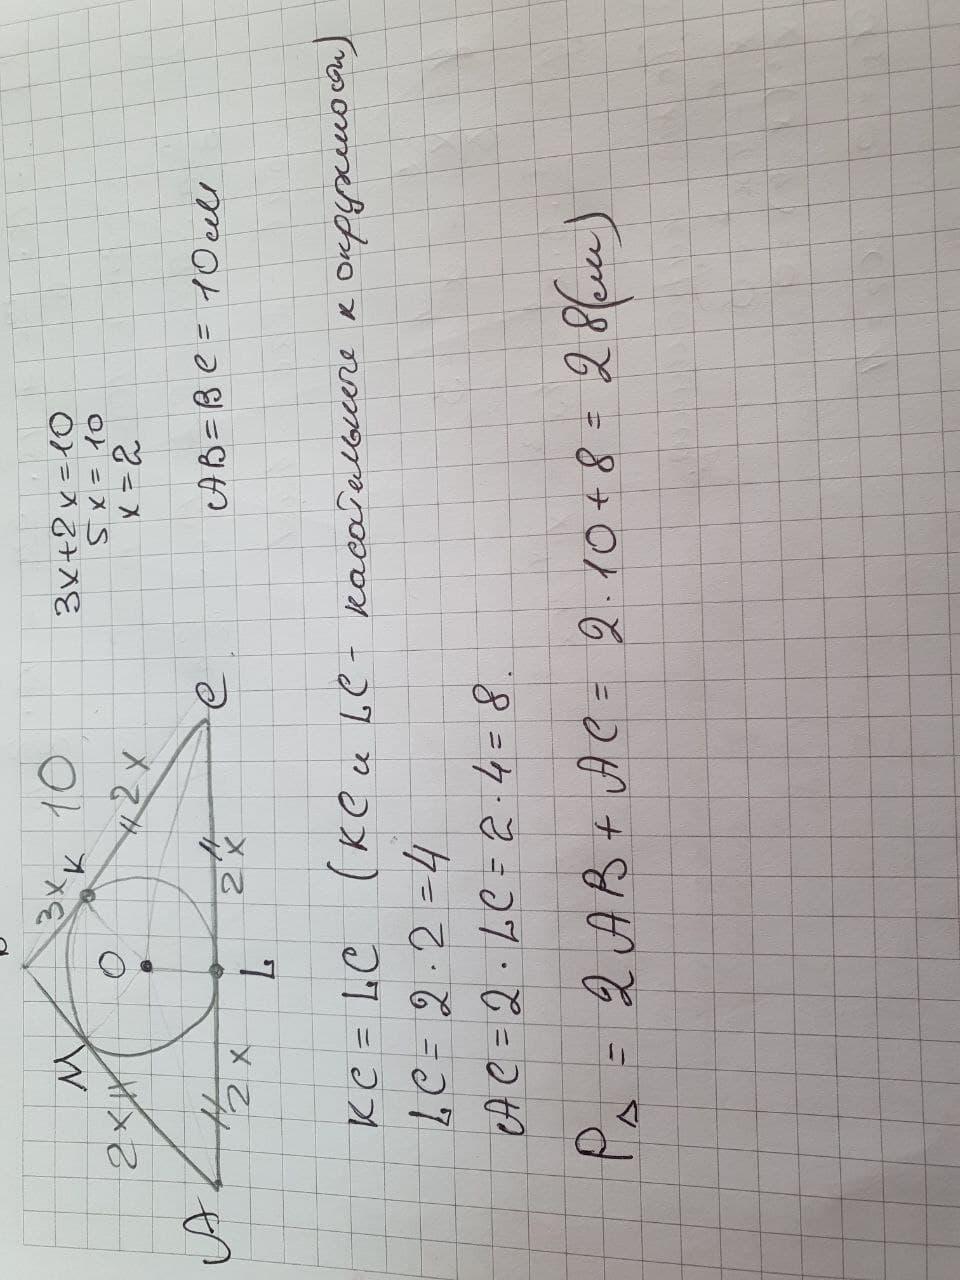 3x+2x=10
5x=10
x=2
AB=BC=10см
B
3x
K
10
M
2x
O
2x
A
2x
L
2x
C
KC=LC (KC и LC - касательные к окружности)
LC=2·2=4
AC=2·LC=2·4=8.
P△=2AB+AC=2·10+8=28(см)